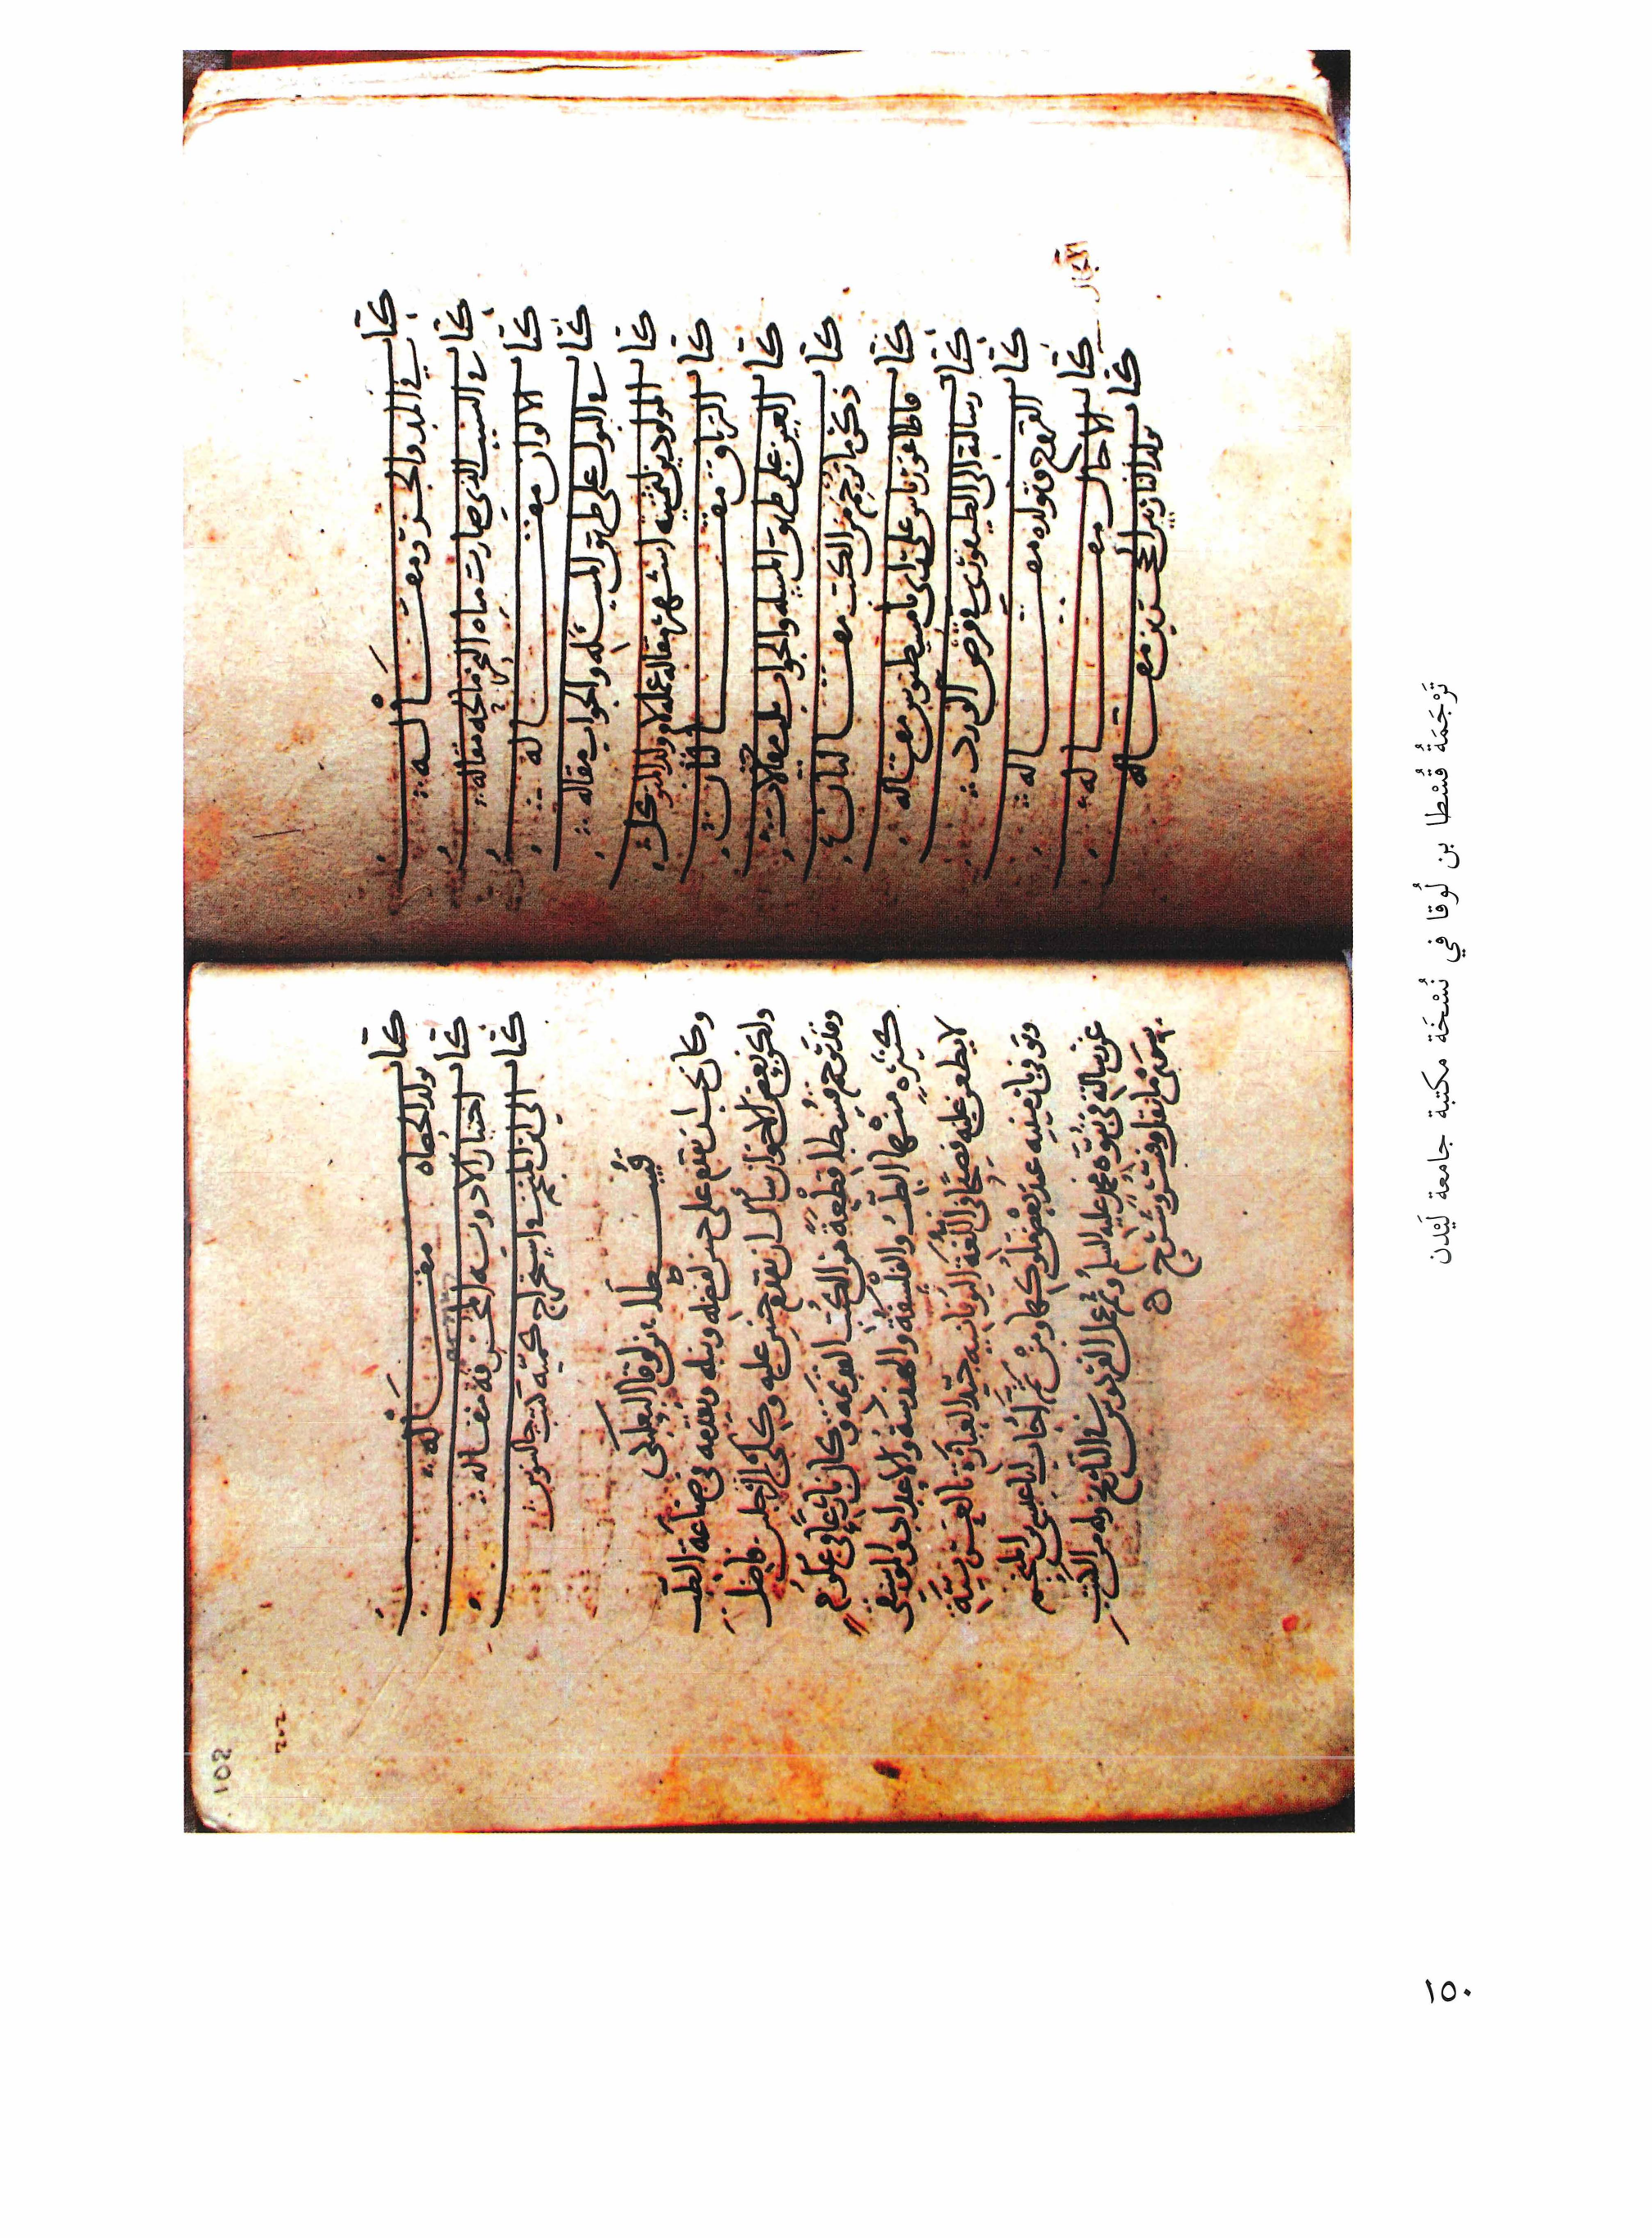 كتاب في المد والجزر مقالة
كتاب في السبب الذي صارت مياه البحر مالحة مقالة
كتاب الالوان مقالة
كتاب في البول على طريق المسئلة والجواب مقالة
كتاب المولودين لثمنية اشهر مقالة عمله لام ولد المتوكل
كتاب الترياق مقالتان
كتاب العين على طريق المسئلة والجواب ثلث مقالات
كتاب ذكر ما ترجم من الكتب مقالتان
كتاب قاطاغورياس على راي ثامسطيوس مقالة
كتاب رسالته الى الطيفوري في قرص الورد
كتاب القروح وتولده مقالة
كتاب الاجال مقالة
الآجال
كتاب تولد النار بين الحجرين مقالة
102
٢٠٢
كتاب تولد الحصاه مقالة
كتاب اختيار الادوية المحرقة مقالة
كتاب الى ابن المنجم في استخراج كمية كتب جالينوس
قسطا بن لوقا البعلبكي
وكان يجب ان يقدم على حنين لفضله ونبله وتقدمه في صناعة الطب
ولكن بعض الاخوان سأل ان يقدم حنين عليه وكلي الرجلين فاضل
وقد ترجم قسطا قطعة من الكتب القديمة وكان بارعا في علوم
كثيرة منها الطب والفلسفة والهندسة والاعداد والموسيقى
لا يطعن عليه فصيحا في اللغة اليونانية جيد العبارة بالعربية
وتوفي بارمينية عند بعض ملوكها ومن ثم اجاب ابا عيسى بن المنجم
عن رسالته في نبوة محمد عليه السلم وثم عمل الفردوس في التاريخ وله من الكتب
سوى ما نقل وفسر وشرح ه
تَرْجَمَةُ قُسْطا بن لُوقا في نُسْخَة مكتبة جامعة لَيْدن
١٥٠